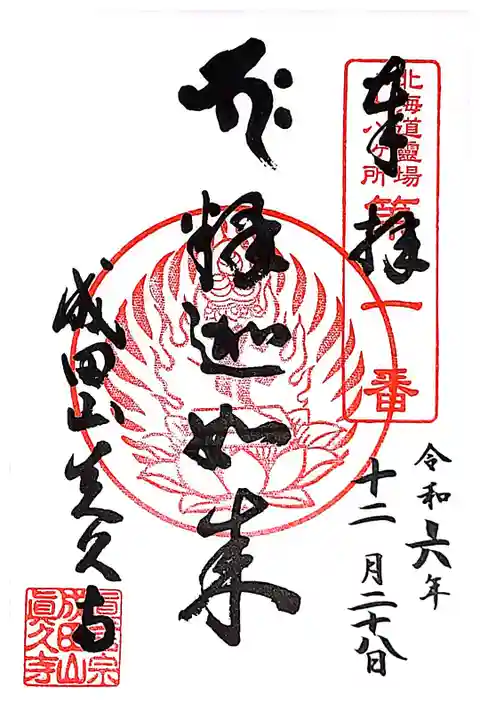 奉拝
北海道靈場
八十八ヶ所
第一番
令和六年
十二月二十八日
釋迦如来
成田山真久寺
真言宗
成田山
眞久寺